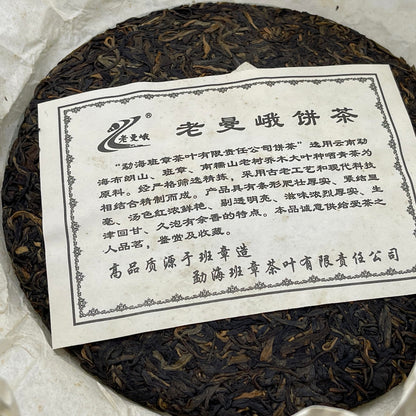 老曼峨
老曼峨饼茶
"勐海班章茶叶有限责任公司饼茶"选用云南勐
海布朗山、班章、南糯山老树乔木大叶种晒青茶为
原料。经严格筛选精拣，采用古老工艺和现代科技
相结合精制而成。产品具有条形肥壮厚实、紧结显
毫、汤色红浓鲜艳、剔透明亮、滋味浓烈厚实、生
津回甘、久泡有余香的特点。本品诚意供给爱茶之
人品茗，鉴赏及收藏。
高品质源于班章造
勐海班章茶叶有限责任公司